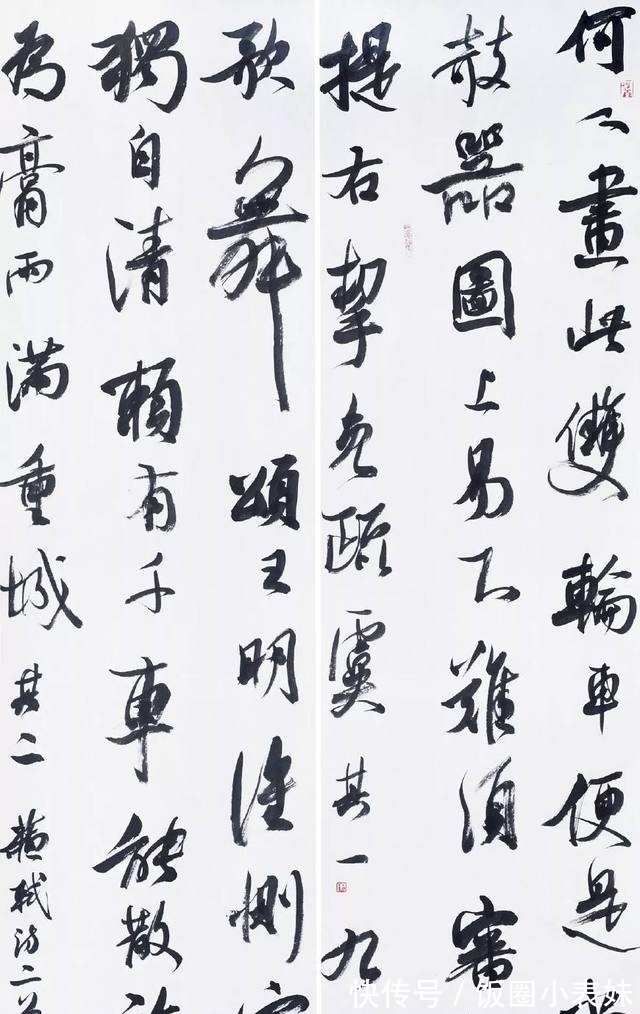 何人畫此雙輪車便是
敧器圖上易下難須審
提右挈免踈虞其一九
歌舞頌王明誰惻
獨自清賴有千車能散
為膏雨滿重城其二蘇軾詩二
快传号/饭圈小表妹